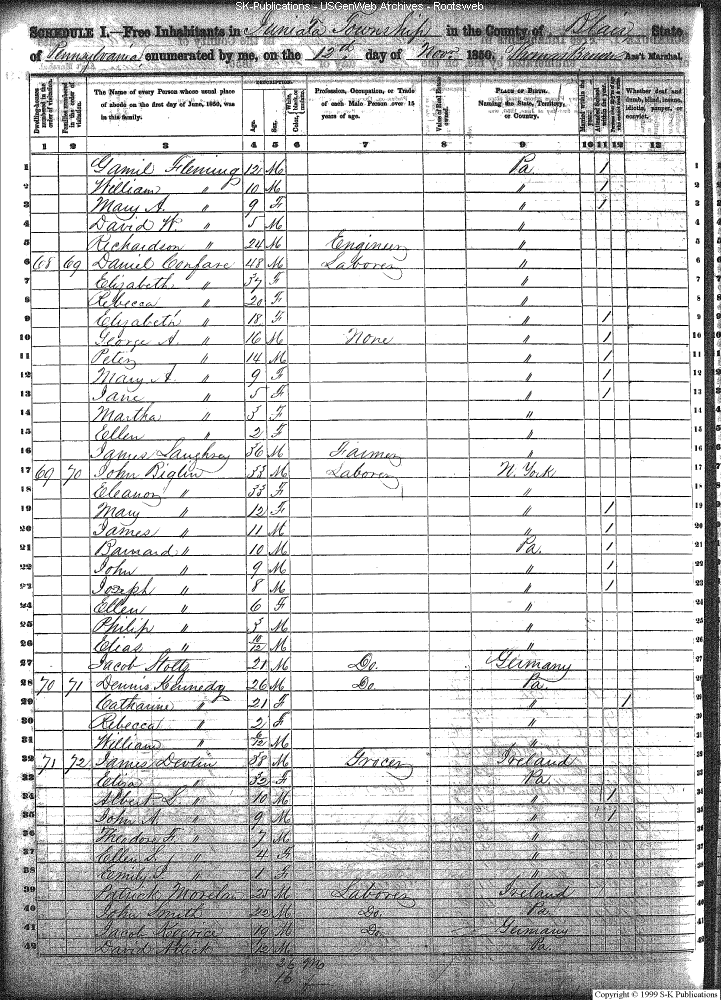 SK-Publications - USGenWeb Archives - Rootsweb
SCHEDULE I.—Free Inhabitants in Juniata Township in the County of Blair State
of Pennsylvania enumerated by me, on the 12th day of Nov 1850. Ass't Marshal.
Dwelling-houses numbered in the order of visitation. Families numbered in the order of visitation. The Name of every Person whose usual place of abode on the first day of June, 1850, was in this family. DESCRIPTION. Age. Sex. Color, White, black, or mulatto. Profession, Occupation, or Trade of each Male Person over 15 years of age. Value of Real Estate owned. PLACE OF BIRTH. Naming the State, Territory, or Country. Married within the year. Attended School within the year. Whether deaf and dumb, blind, insane, idiotic, pauper, or convict.
1 2 3 4 5 6 7 8 9 10 11 12 13
1 Fleming 12 M Pa 1 1
2 William " 10 M " 1 2
3 Mary A. " 9 F " 1 3
4 David W. " 5 M " 4
5 Richardson " 24 M Engineer " 5
6 68 69 Daniel Confare 48 M Laborer " 6
7 Elizabeth " 37 F " 7
8 Rebecca " 20 F " 8
9 Elizabeth " 18 F " 1 9
10 George A. " 16 M None " 1 10
11 Peter " 14 M " 1 11
12 Mary A. " 9 F " 1 12
13 Jane " 5 F " 1 13
14 Martha " 3 F " 14
15 Ellen " 2 F " 15
16 James Laughrey 36 M Farmer " 16
17 69 70 John Biglin 33 M Laborer N. York 17
18 Eleanor " 33 F " 18
19 Mary " 12 F " 1 19
20 James " 11 M " 1 20
21 Barnard " 10 M Pa. 1 21
22 John " 9 M " 1 22
23 Joseph " 8 M " 1 23
24 Ellen " 6 F " 24
25 Philip " 3 M " 25
26 Elias " 10/12 M " 26
27 Jacob Stoltz 21 M Do. Germany 27
28 70 71 Dennis Kennedy 26 M Do. Pa. 28
29 Catharine " 21 F " 1 29
30 Rebecca " 2 F " 30
31 William " /12 M " 31
32 71 72 James Devlin 38 M Grocer Ireland 32
33 Eliza " 32 F Pa. 33
34 Albert L. " 10 M " 1 34
35 John A. " 9 M " 1 35
36 Theodore F. " 7 M " 36
37 Ellen S. " 4 F " 37
38 Emily " 1 F " 38
39 Patrick 25 M Laborer Ireland 39
40 John Smith 22 M Do. Pa 40
41 Jacob 19 M Do. Germany 41
42 David 12 M Pa 42
26 M
16
Copyright © 1999 S-K Publications